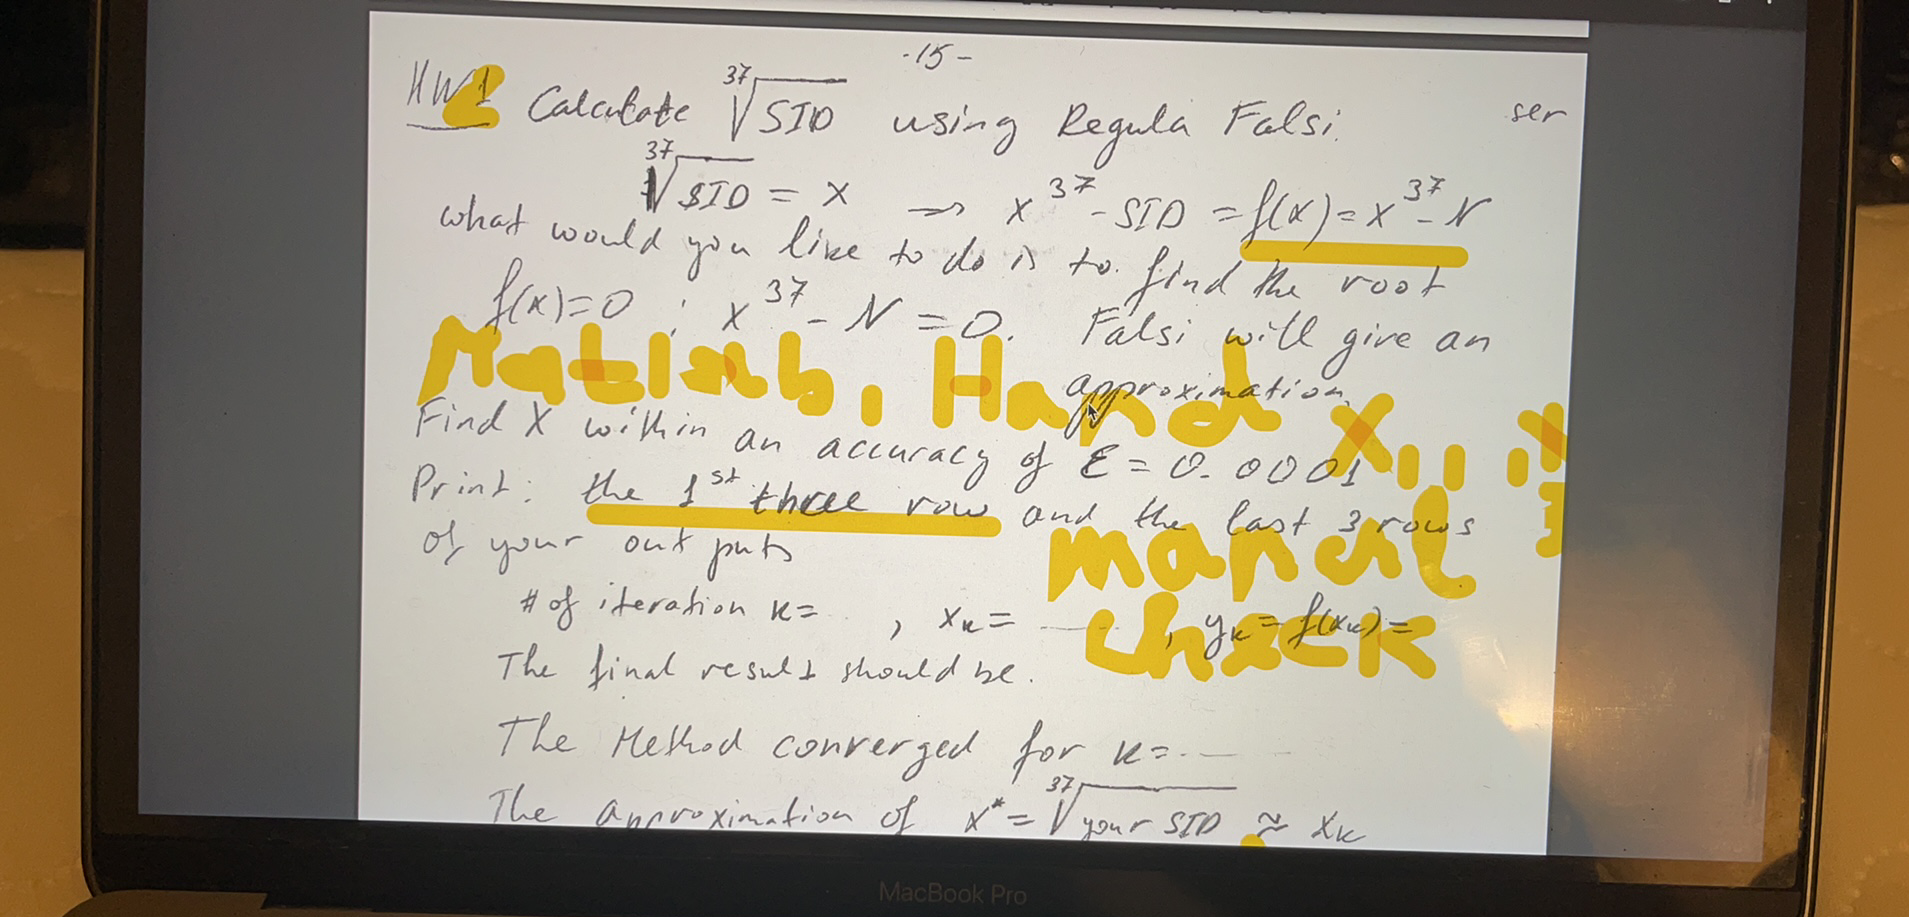 -15-
HW1 Calculate ³⁷√SID using Regula Falsi.
ser
³⁷√SID = x → x³⁷ - SID = f(x) = x³⁷ - N
what would you like to do is to find the root
f(x)=0 ; x³⁷ - N = 0. Falsi will give an
approximation.
Matlab, Hand
Find X within an accuracy of ε = 0.0001
Print: the 1st three row and the last 3 rows
of your out puts
check
# of iteration k= , xk = , yk = f(xk) =
The final result should be.
The Method converged for k=
The approximation of x* = ³⁷√your SID ≈ xk
MacBook Pro